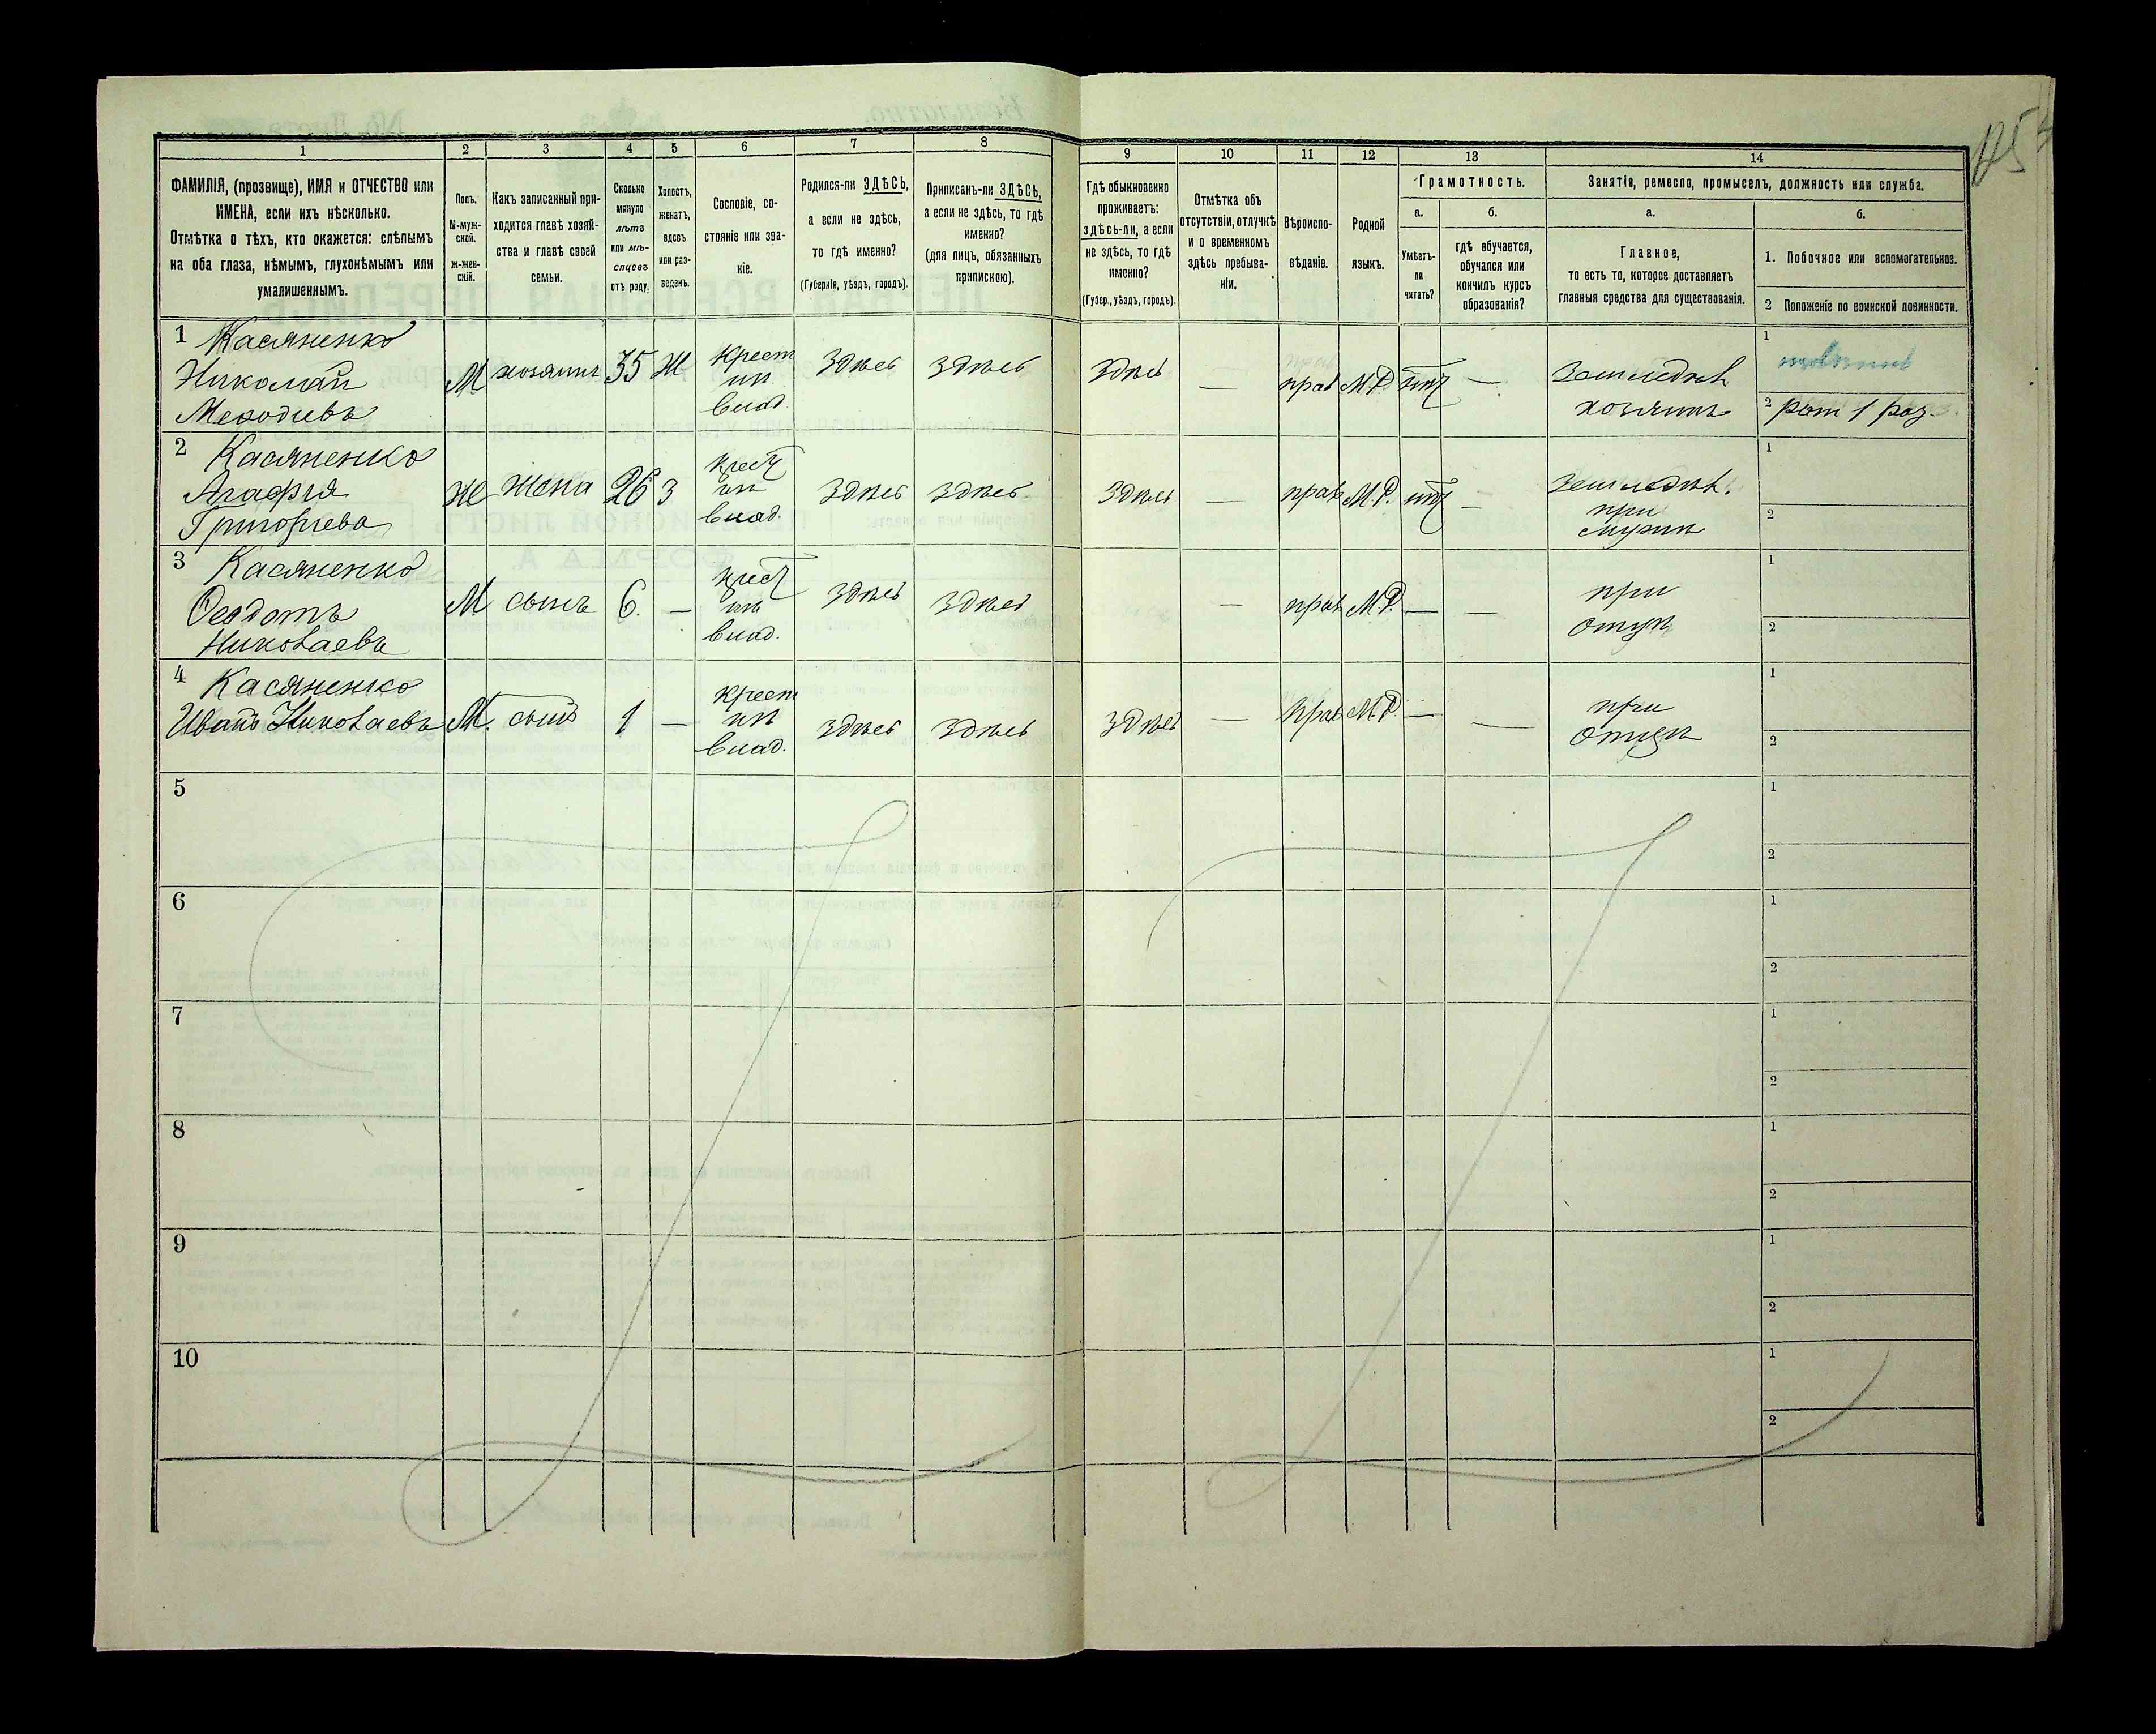 1 2 3 4 5 6 7 8 9 10 11 12 13 14
ФАМИЛІЯ, (прозвище), ИМЯ и ОТЧЕСТВО или
ИМЕНА, если ихъ нѣсколько.
Отмѣтка о тѣхъ, кто окажется: слѣпымъ
на оба глаза, нѣмымъ, глухонѣмымъ или
умалишеннымъ.
Полъ.
М-муж-
ской.
Ж-жен-
скій.
Какъ записанный при-
ходится главѣ хозяй-
ства и главѣ своей
семьи.
Сколько
минуло
лѣтъ
или мѣ-
сяцевъ
отъ роду.
Холостъ,
женатъ,
вдовъ
или раз-
веденъ.
Сословіе, со-
стояніе или зва-
ніе.
Родился-ли ЗДѢСЬ,
а если не здѣсь,
то гдѣ именно?
(Губернія, уѣздъ, городъ).
Приписанъ-ли ЗДѢСЬ,
а если не здѣсь, то гдѣ
именно?
(для лицъ, обязанныхъ
припискою).
Гдѣ обыкновенно
проживаетъ:
здѣсь-ли, а если
не здѣсь, то гдѣ
именно?
(Губер., уѣздъ, городъ).
Отмѣтка объ
отсутствіи, отлучкѣ
и о временномъ
здѣсь пребыва-
ніи.
Вѣроиспо-
вѣданіе.
Родной
языкъ.
Грамотность.
а.
Умѣетъ-
ли
читать?
б.
гдѣ обучается,
обучался или
кончилъ курсъ
образованія?
Занятіе, ремесло, промыселъ, должность или служба.
а.
Главное,
то есть то, которое доставляетъ
главныя средства для существованія.
б.
1. Побочное или вспомогательное.
2 Положеніе по воинской повинности.
1 Касяненко
Николай
Мефодіевъ
М хозяинъ 35 Ж
Крест
из
влад.
Здѣсь Здѣсь Здѣсь — прав М.Р. нѣт —
Земледѣл
хозяинъ
1
2 рат 1 раз.
2 Касяненко
Агафія
Григорьева
Ж жена 26 З
Крест
из
влад.
Здѣсь Здѣсь Здѣсь — прав М.Р. нѣт —
Земледѣл.
при
мужѣ
1
2
3 Касяненко
Феодотъ
Николаевъ
М сынъ 6. —
Крест
из
влад.
Здѣсь Здѣсь — прав М.Р. — —
при
отцѣ
1
2
4 Касяненко
Иванъ Николаевъ
М. сынъ 1 —
Крест
из
влад.
Здѣсь Здѣсь Здѣсь — Прав М.Р. — —
при
отцѣ
1
2
5
1
2
6
1
2
7
1
2
8
1
2
9
1
2
10
1
2